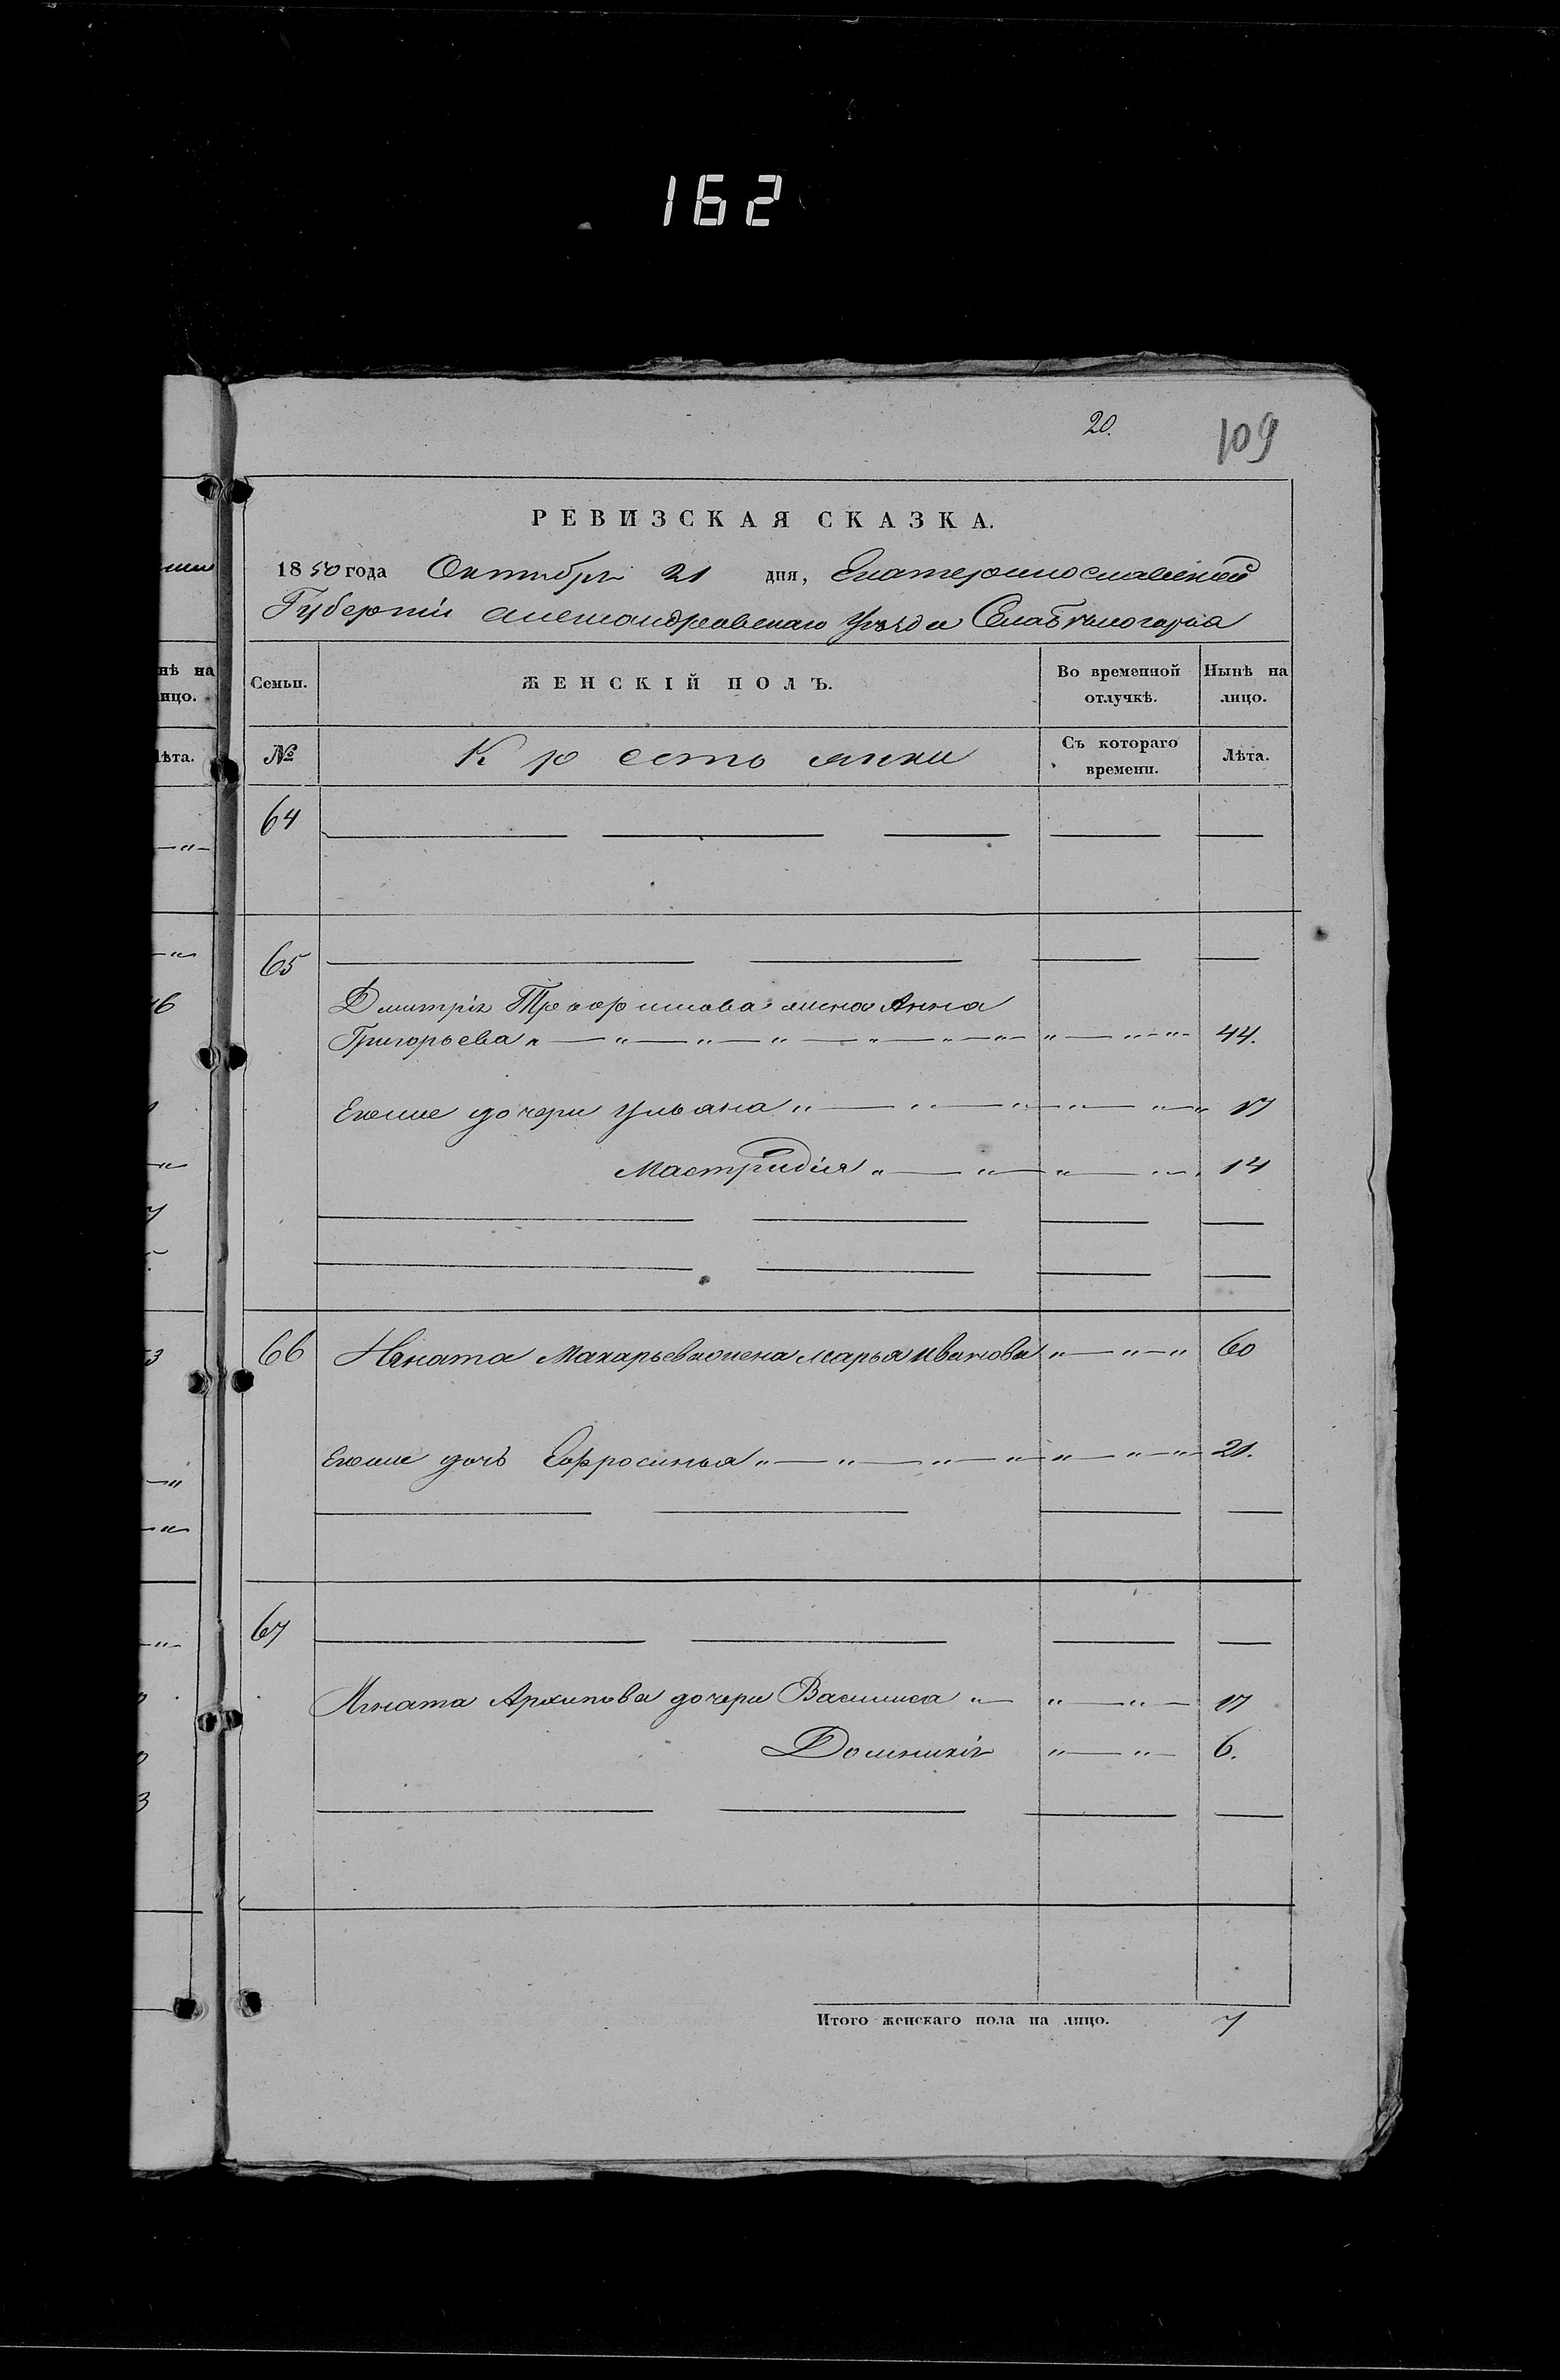 162
20.
109
РЕВИЗСКАЯ СКАЗКА.
1850 года Октября 21 дня, Екатеринославской
Губерніи Александровскаго Уѣзда
нѣ на
лицо.
Семьи.
ЖЕНСКІЙ ПОЛЪ.
Во временной
отлучкѣ.
Нынѣ на
лицо.
Лѣта.
№
Крестьянки
Съ котораго
времени.
Лѣта.
64
65
Дмитрія Трофимова жена Анна
Григорьева 44.
Егоже дочери Ульяна 17
Мастридія 14
66 Игната Макарьева жена Марья Иванова 60
Егоже дочь Ефросинья 21.
67
Игната Архипова дочери Василиса 17
Домникія 6.
Итого женскаго пола на лицо. 7